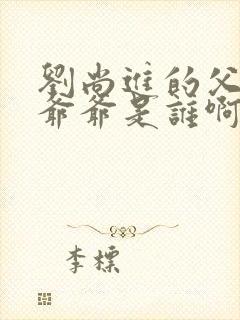 劉尚進的父
爺爺是誰啊
李標